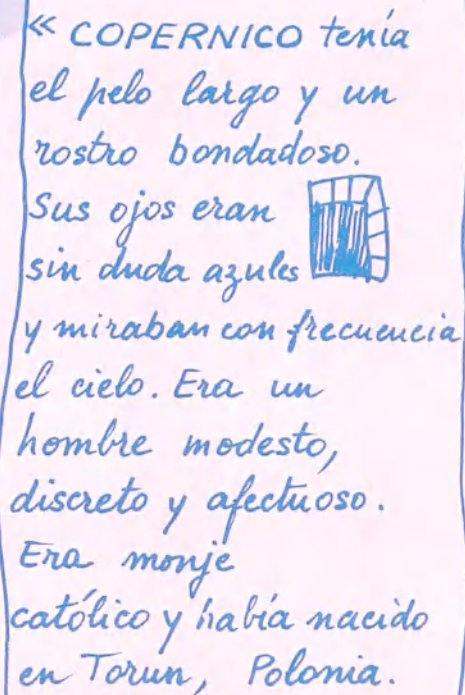 « COPERNICO tenía
el pelo largo y un
rostro bondadoso.
Sus ojos eran
sin duda azules
y miraban con frecuencia
el cielo. Era un
hombre modesto,
discreto y afectuoso.
Era monje
católico y había nacido
en Torun, Polonia.